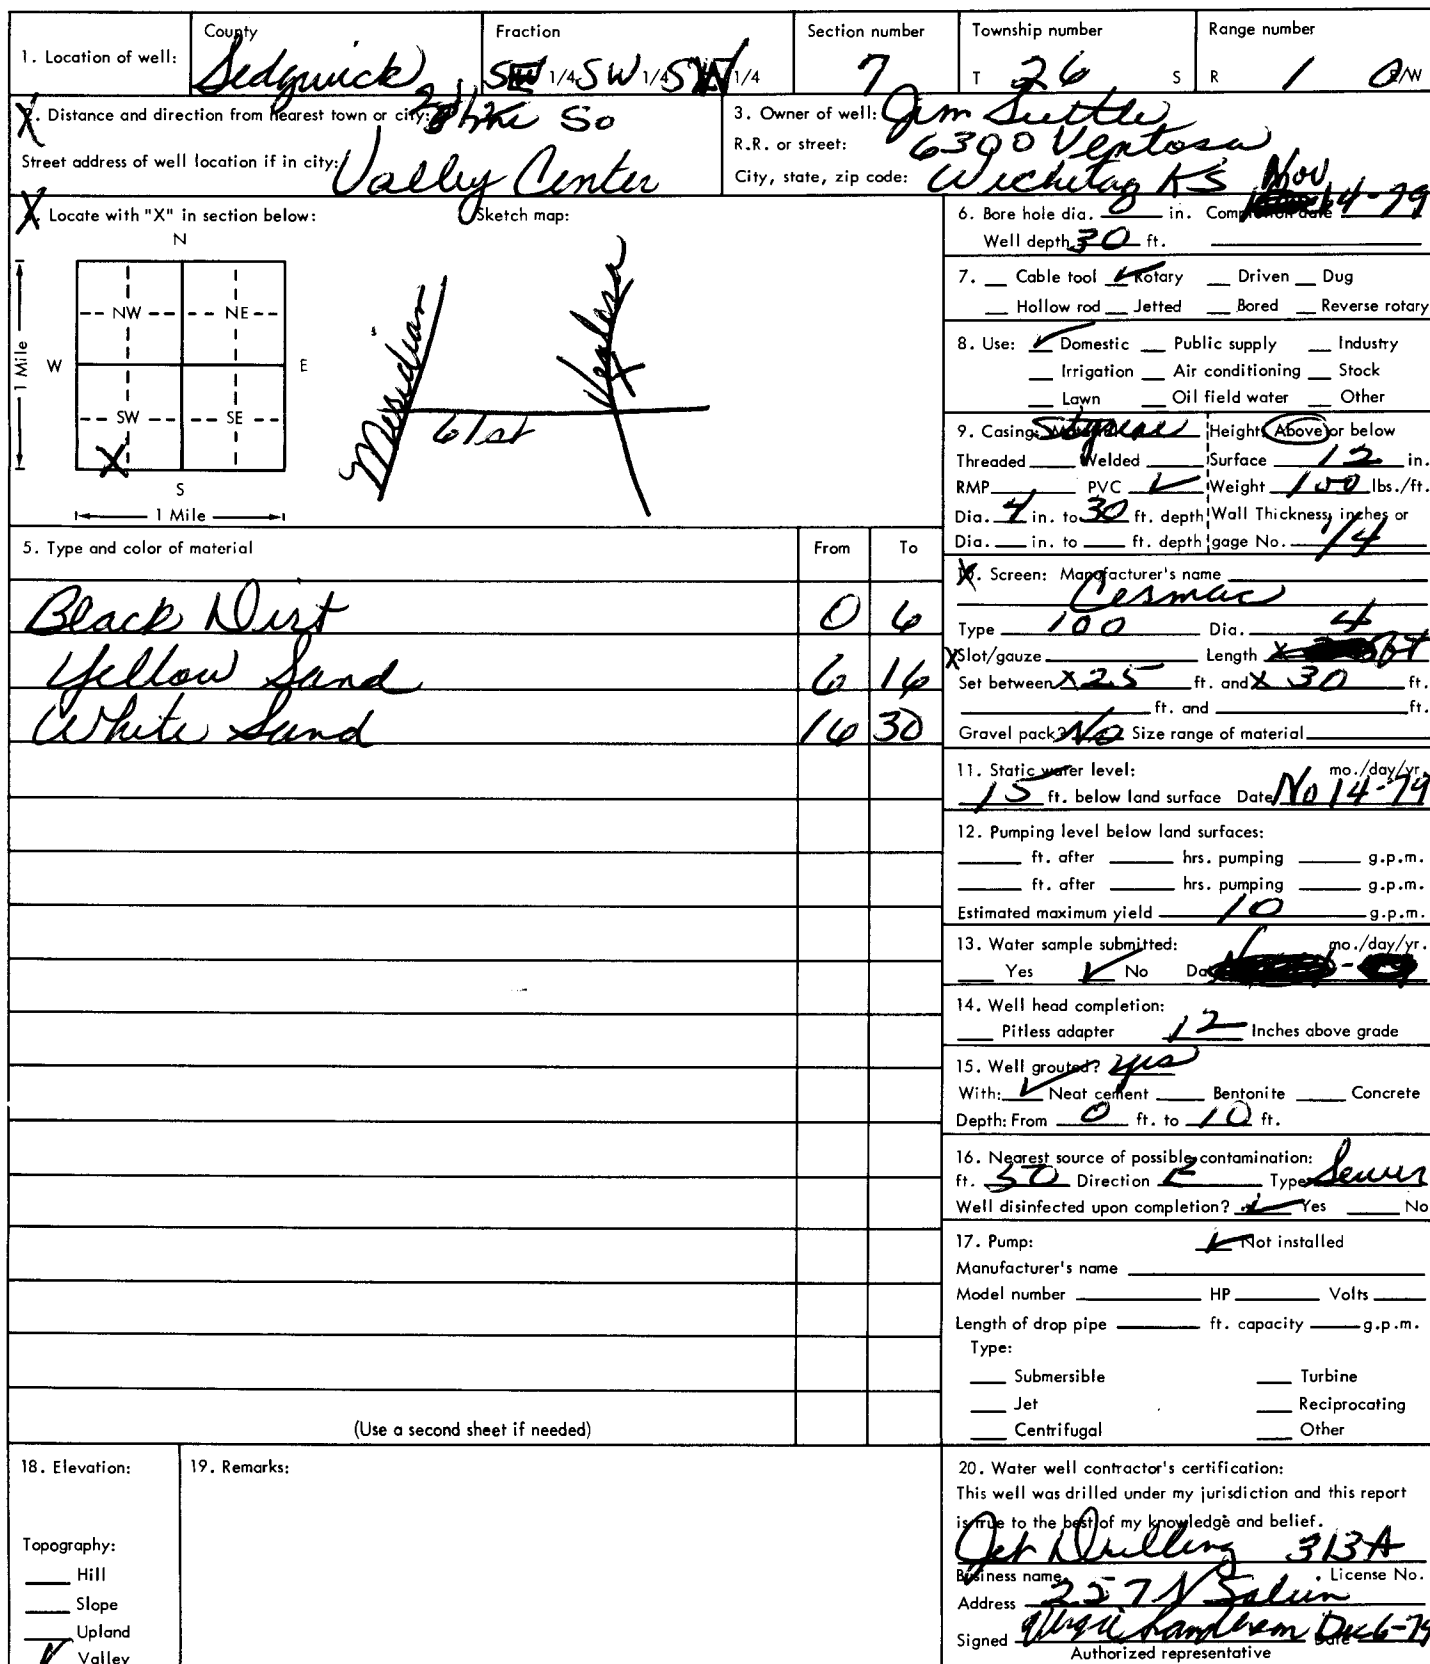 County Fraction Section number Township number Range number
1. Location of well: Sedgwick 1/4 SW 1/4 SW 1/4 7 T 26 S R 1 E/W
2. Distance and direction from nearest town or city: So
Street address of well location if in city: Valley Center
3. Owner of well: Jim Suttle
R.R. or street: 6300 Ventosa
City, state, zip code: Wichita KS
X Locate with "X" in section below: Sketch map:
N
NW NE
W E
SW SE
X
S
1 Mile
1 Mile
Meridian
61st
X
5. Type and color of material From To
Black Dirt 0 6
Yellow Sand 6 16
White Sand 16 30
(Use a second sheet if needed)
6. Bore hole dia. in. Completion date Nov 14-79
Well depth 30 ft.
7. Cable tool ✓ Rotary Driven Dug
Hollow rod Jetted Bored Reverse rotary
8. Use: ✓ Domestic Public supply Industry
Irrigation Air conditioning Stock
Lawn Oil field water Other
9. Casing: Material Styrene Height: Above or below
Threaded Welded Surface 12 in.
RMP PVC ✓ Weight 100 lbs./ft.
Dia. 4 in. to 30 ft. depth Wall Thickness: inches or
Dia. in. to ft. depth gage No. 1/4
10. Screen: Manufacturer's name
Cesmac
Type 100 Dia. 4
X Slot/gauze Length X ft
Set between X 25 ft. and X 30 ft.
ft. and ft.
Gravel pack? No Size range of material
11. Static water level: mo./day/yr.
15 ft. below land surface Date No 14-79
12. Pumping level below land surfaces:
ft. after hrs. pumping g.p.m.
ft. after hrs. pumping g.p.m.
Estimated maximum yield 10 g.p.m.
13. Water sample submitted: mo./day/yr.
Yes ✓ No Date
14. Well head completion:
Pitless adapter 12 Inches above grade
15. Well grouted? yes
With: ✓ Neat cement Bentonite Concrete
Depth: From 0 ft. to 10 ft.
16. Nearest source of possible contamination:
ft. 50 Direction E Type Sewer
Well disinfected upon completion? ✓ Yes No
17. Pump: ✓ Not installed
Manufacturer's name
Model number HP Volts
Length of drop pipe ft. capacity g.p.m.
Type:
Submersible Turbine
Jet Reciprocating
Centrifugal Other
18. Elevation:
Topography:
Hill
Slope
Upland
✓ Valley
19. Remarks:
20. Water well contractor's certification:
This well was drilled under my jurisdiction and this report
is true to the best of my knowledge and belief.
Jet Drilling 313A
Business name License No.
Address 257 N
Signed Dec 6-79 Date
Authorized representative